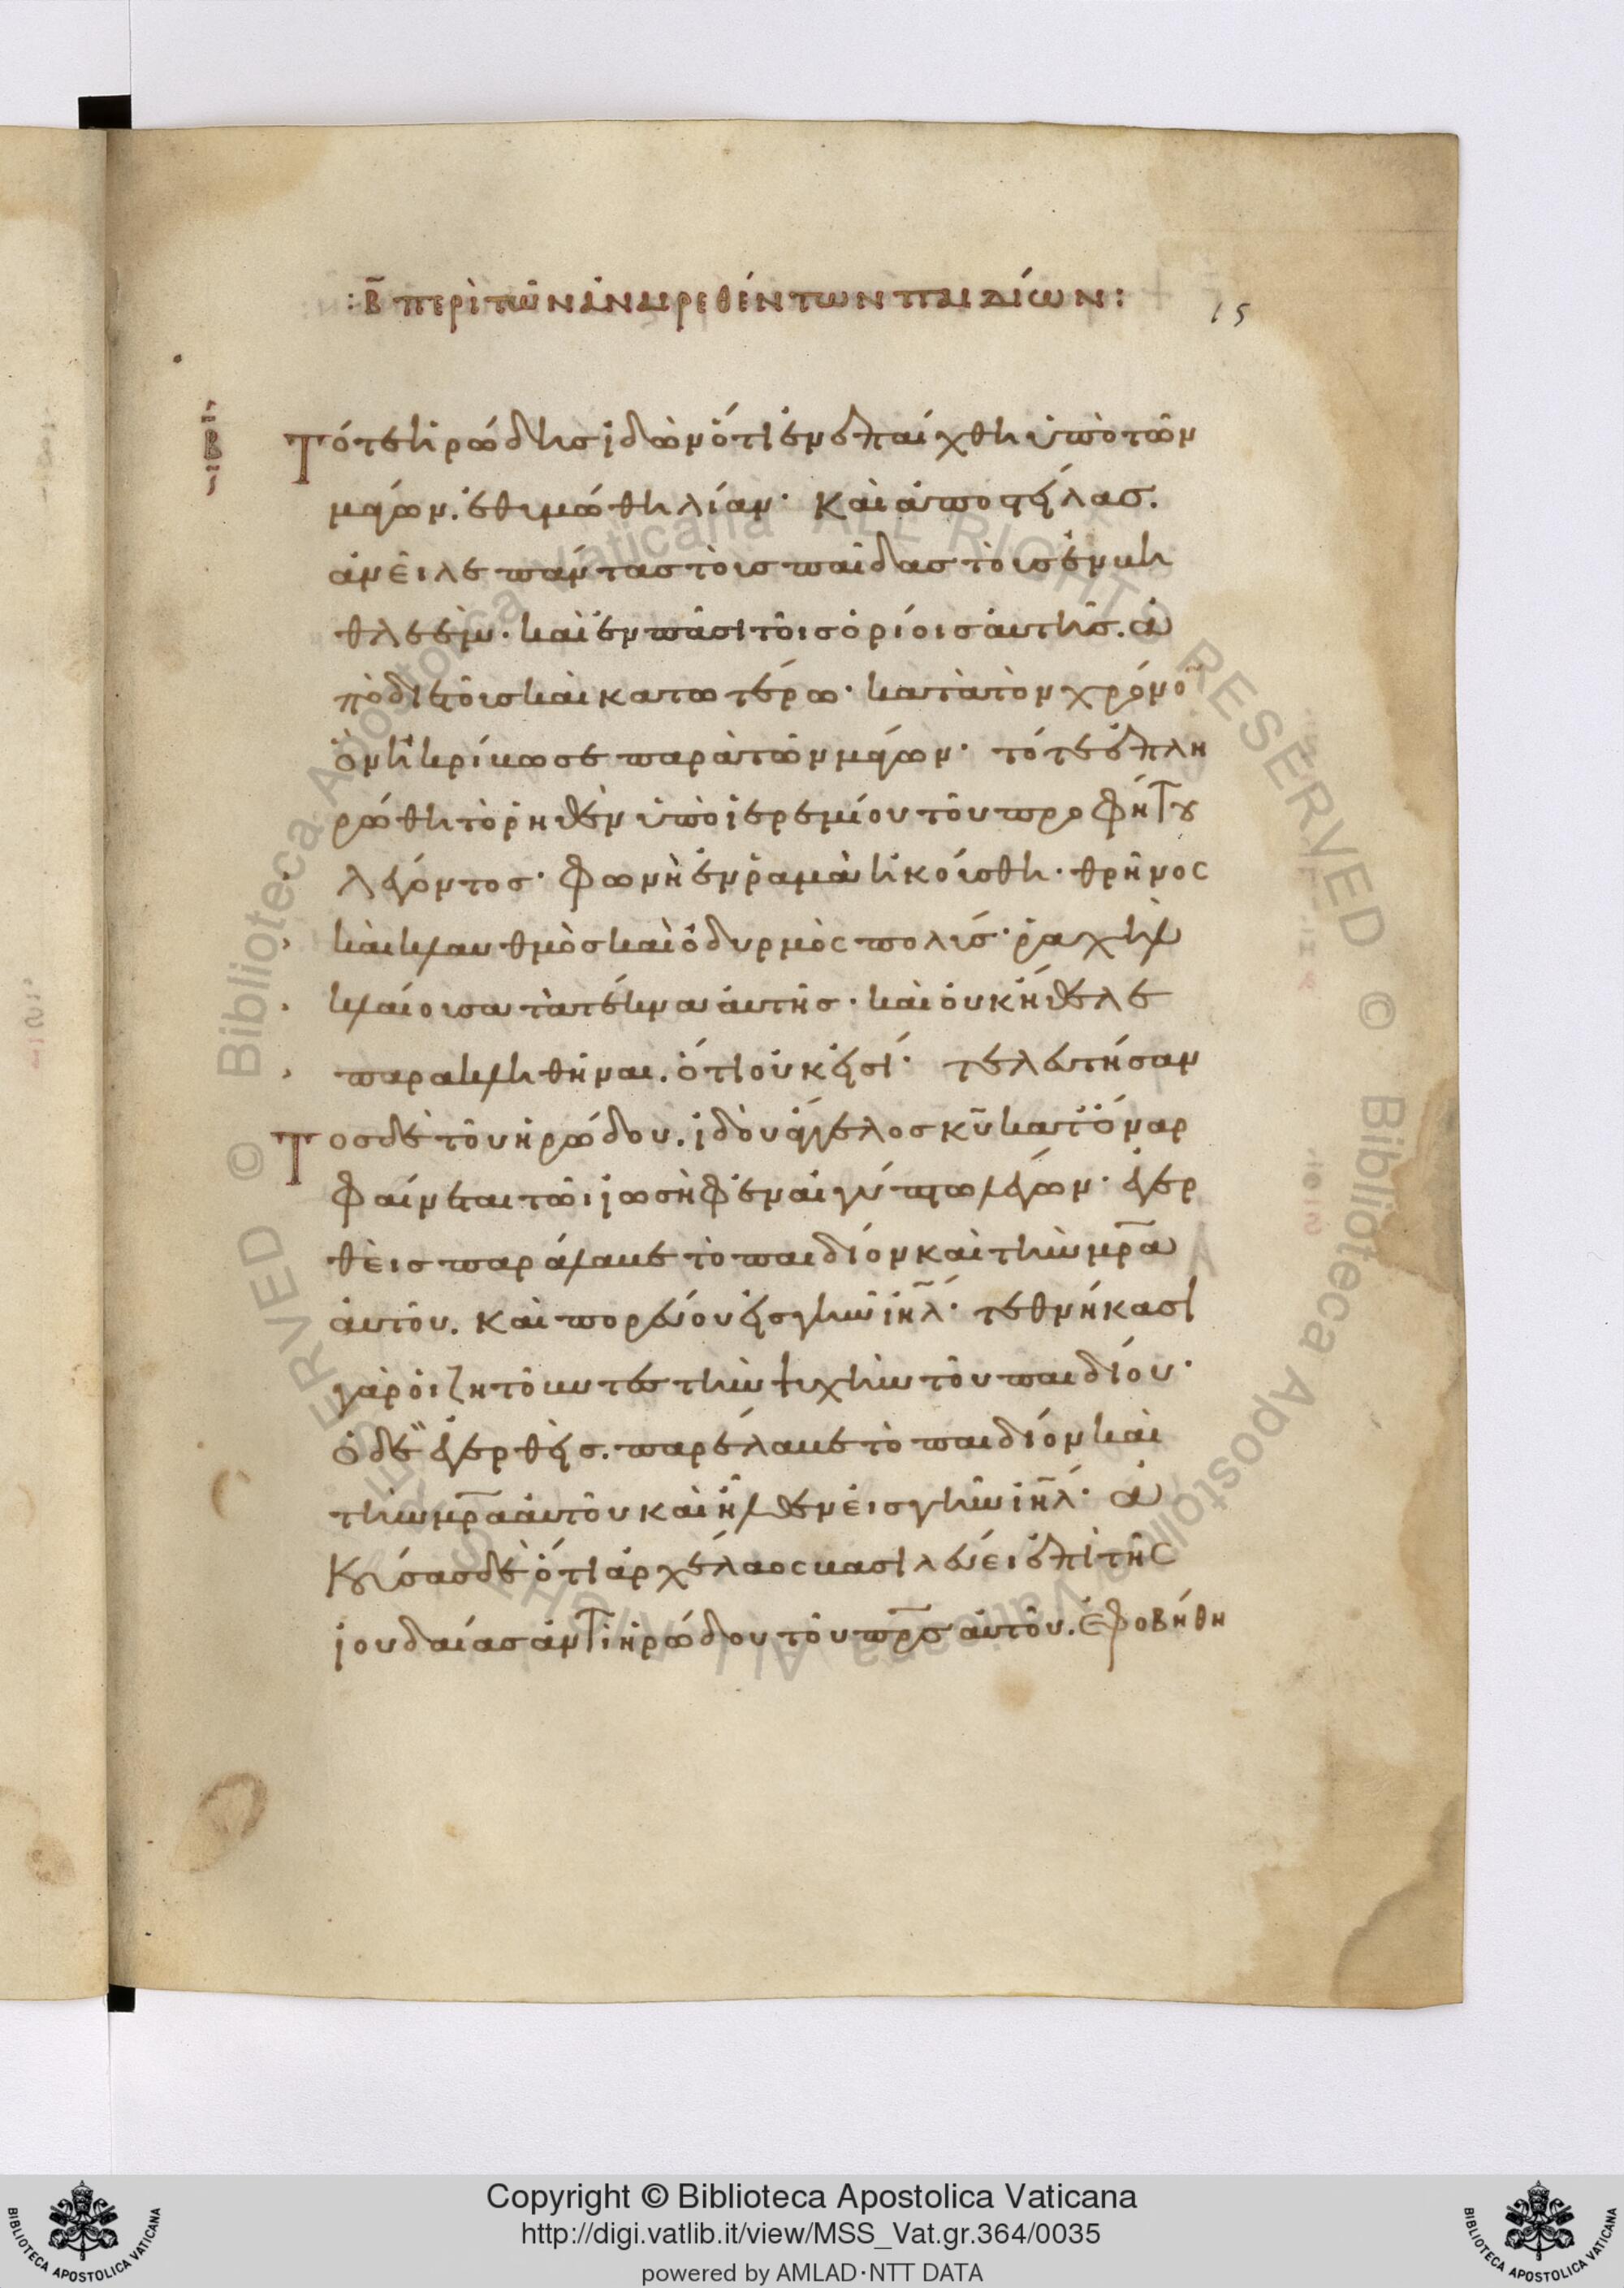 :Β̅ περὶ τῶν ἀναιρεθέντων παιδίων:
15
Β̅
Τότε ἡρώδης ἰδὼν ὅτι ἐνεπαίχθη ὑπὸ τῶν
μάγων. ἐθυμώθη λίαν· καὶ ἀποστείλας.
ἀνεῖλε πάντας τοὺς παῖδας τοὺς ἐν βη
θλεέμ. καὶ ἐν πᾶσι τοῖς ὁρίοις αὐτῆς. ἀ
πὸ διετοῦς καὶ κατωτέρω· κατὰ τὸν χρόνο̅
ὃν ἠκρίβωσε παρὰ τῶν μάγων· τότε ἐπλη
ρώθη τὸ ῥηθὲν ὑπὸ ἱερεμίου τοῦ προφήτου
λέγοντος· φωνὴ ἐν ῥαμὰ ἠκούσθη· θρῆνος
καὶ κλαυθμὸς καὶ ὀδυρμὸς πολύς· ῥαχὴλ
κλαίουσα τὰ τέκνα αὐτῆς. καὶ οὐκ ἤθελε
παρακληθῆναι. ὅτι οὐκ εἰσί· τελευτήσαν
Τος δὲ τοῦ ἡρώδου. ἰδοὺ ἄγγελος κ̅υ̅ κατ' ὄναρ
φαίνεται τῶ ἰωσὴφ ἐν αἰγύπτω λέγων· ἐγερ
θεὶς παράλαβε τὸ παιδίον καὶ τὴν μ̅ρ̅α̅
αὐτοῦ. καὶ πορεύου εἰς γῆν ἰ̅η̅λ̅· τεθνήκασι
γὰρ οἱ ζητοῦντες τὴν ψυχὴν τοῦ παιδίου·
ὁ δὲ ἐγερθεὶς. παρέλαβε τὸ παιδίον καὶ
τὴν μ̅ρ̅α̅ αὐτοῦ καὶ ἦλθεν εἰς γῆν ἰ̅η̅λ̅· ἀ
κούσας δὲ ὅτι ἀρχέλαος βασιλεύει ἐπὶ τῆς
ἰουδαίας ἀντὶ ἡρώδου τοῦ π̅ρ̅ς̅ αὐτοῦ. ἐφοβήθη
Copyright © Biblioteca Apostolica Vaticana
http://digi.vatlib.it/view/MSS_Vat.gr.364/0035
powered by AMLAD·NTT DATA